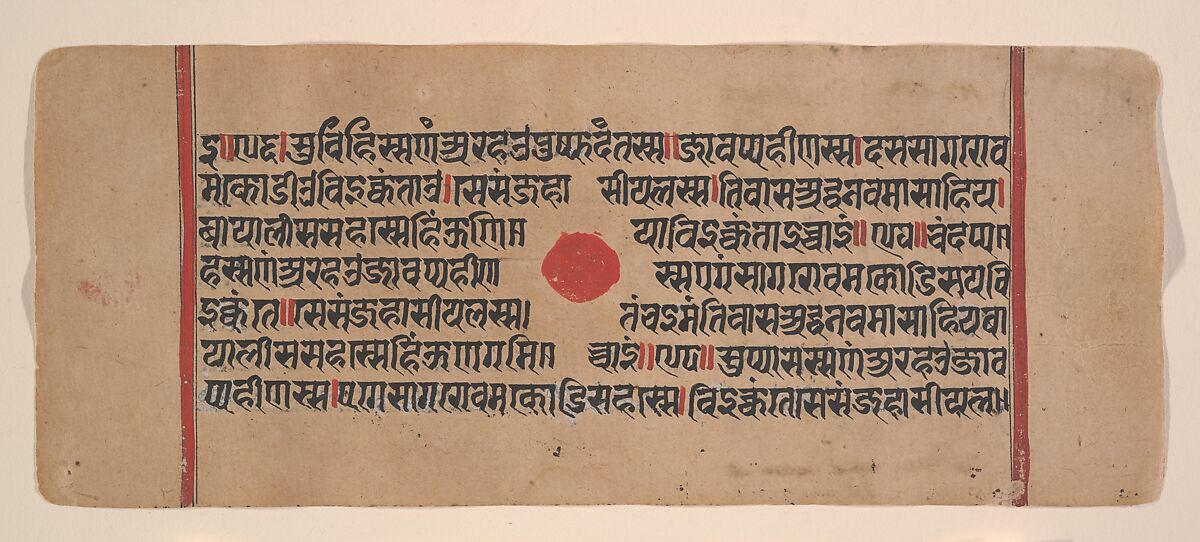 इ॥सुविहिस्सणंअरहउपुप्फदंतस्स॥जावप्पहीणस्स।दससागरोव
माकोडीउविइक्कंताउ।सेसंजहा सीयलस्स।तिवासअद्धनवमासाहिय।
बायालीससहस्सेहिंऊणि॥ याविइक्कंताइच्चाइं॥चंदप्प॥
हस्सणंअरहउजावप्पहीण स्सएगंसागरोवमकोडिसयंवि
इक्कंतं॥सेसंजहासीयलस्स। तंचइमंतिवासअद्धनवमासाहियबा
यालीससहस्सेहिंऊणगमि॥ च्चाइं॥सुप्पासस्सणंअरहउजाव
प्पहीणस्स।एगेसागरोवमकोडिसहस्से।विइक्कंतेसेसंजहासीयल॥